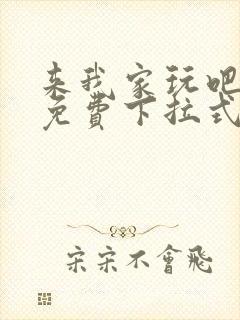 来我家玩吧
免費下拉式
宋宋不會飛